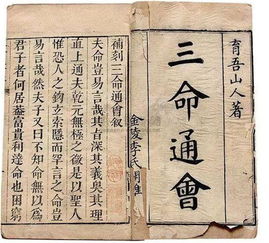 育吾山人著
三命通會
補刻三命通會叙
夫命豈易言哉其旨深其義奥其理
直上通夫乾元無極之微是以聖人
惟恐人之鉤玄索隱而罕言之命豈
易言哉然夫子又曰不知命無以為
君子者何居蓋富貴利達命也困窮